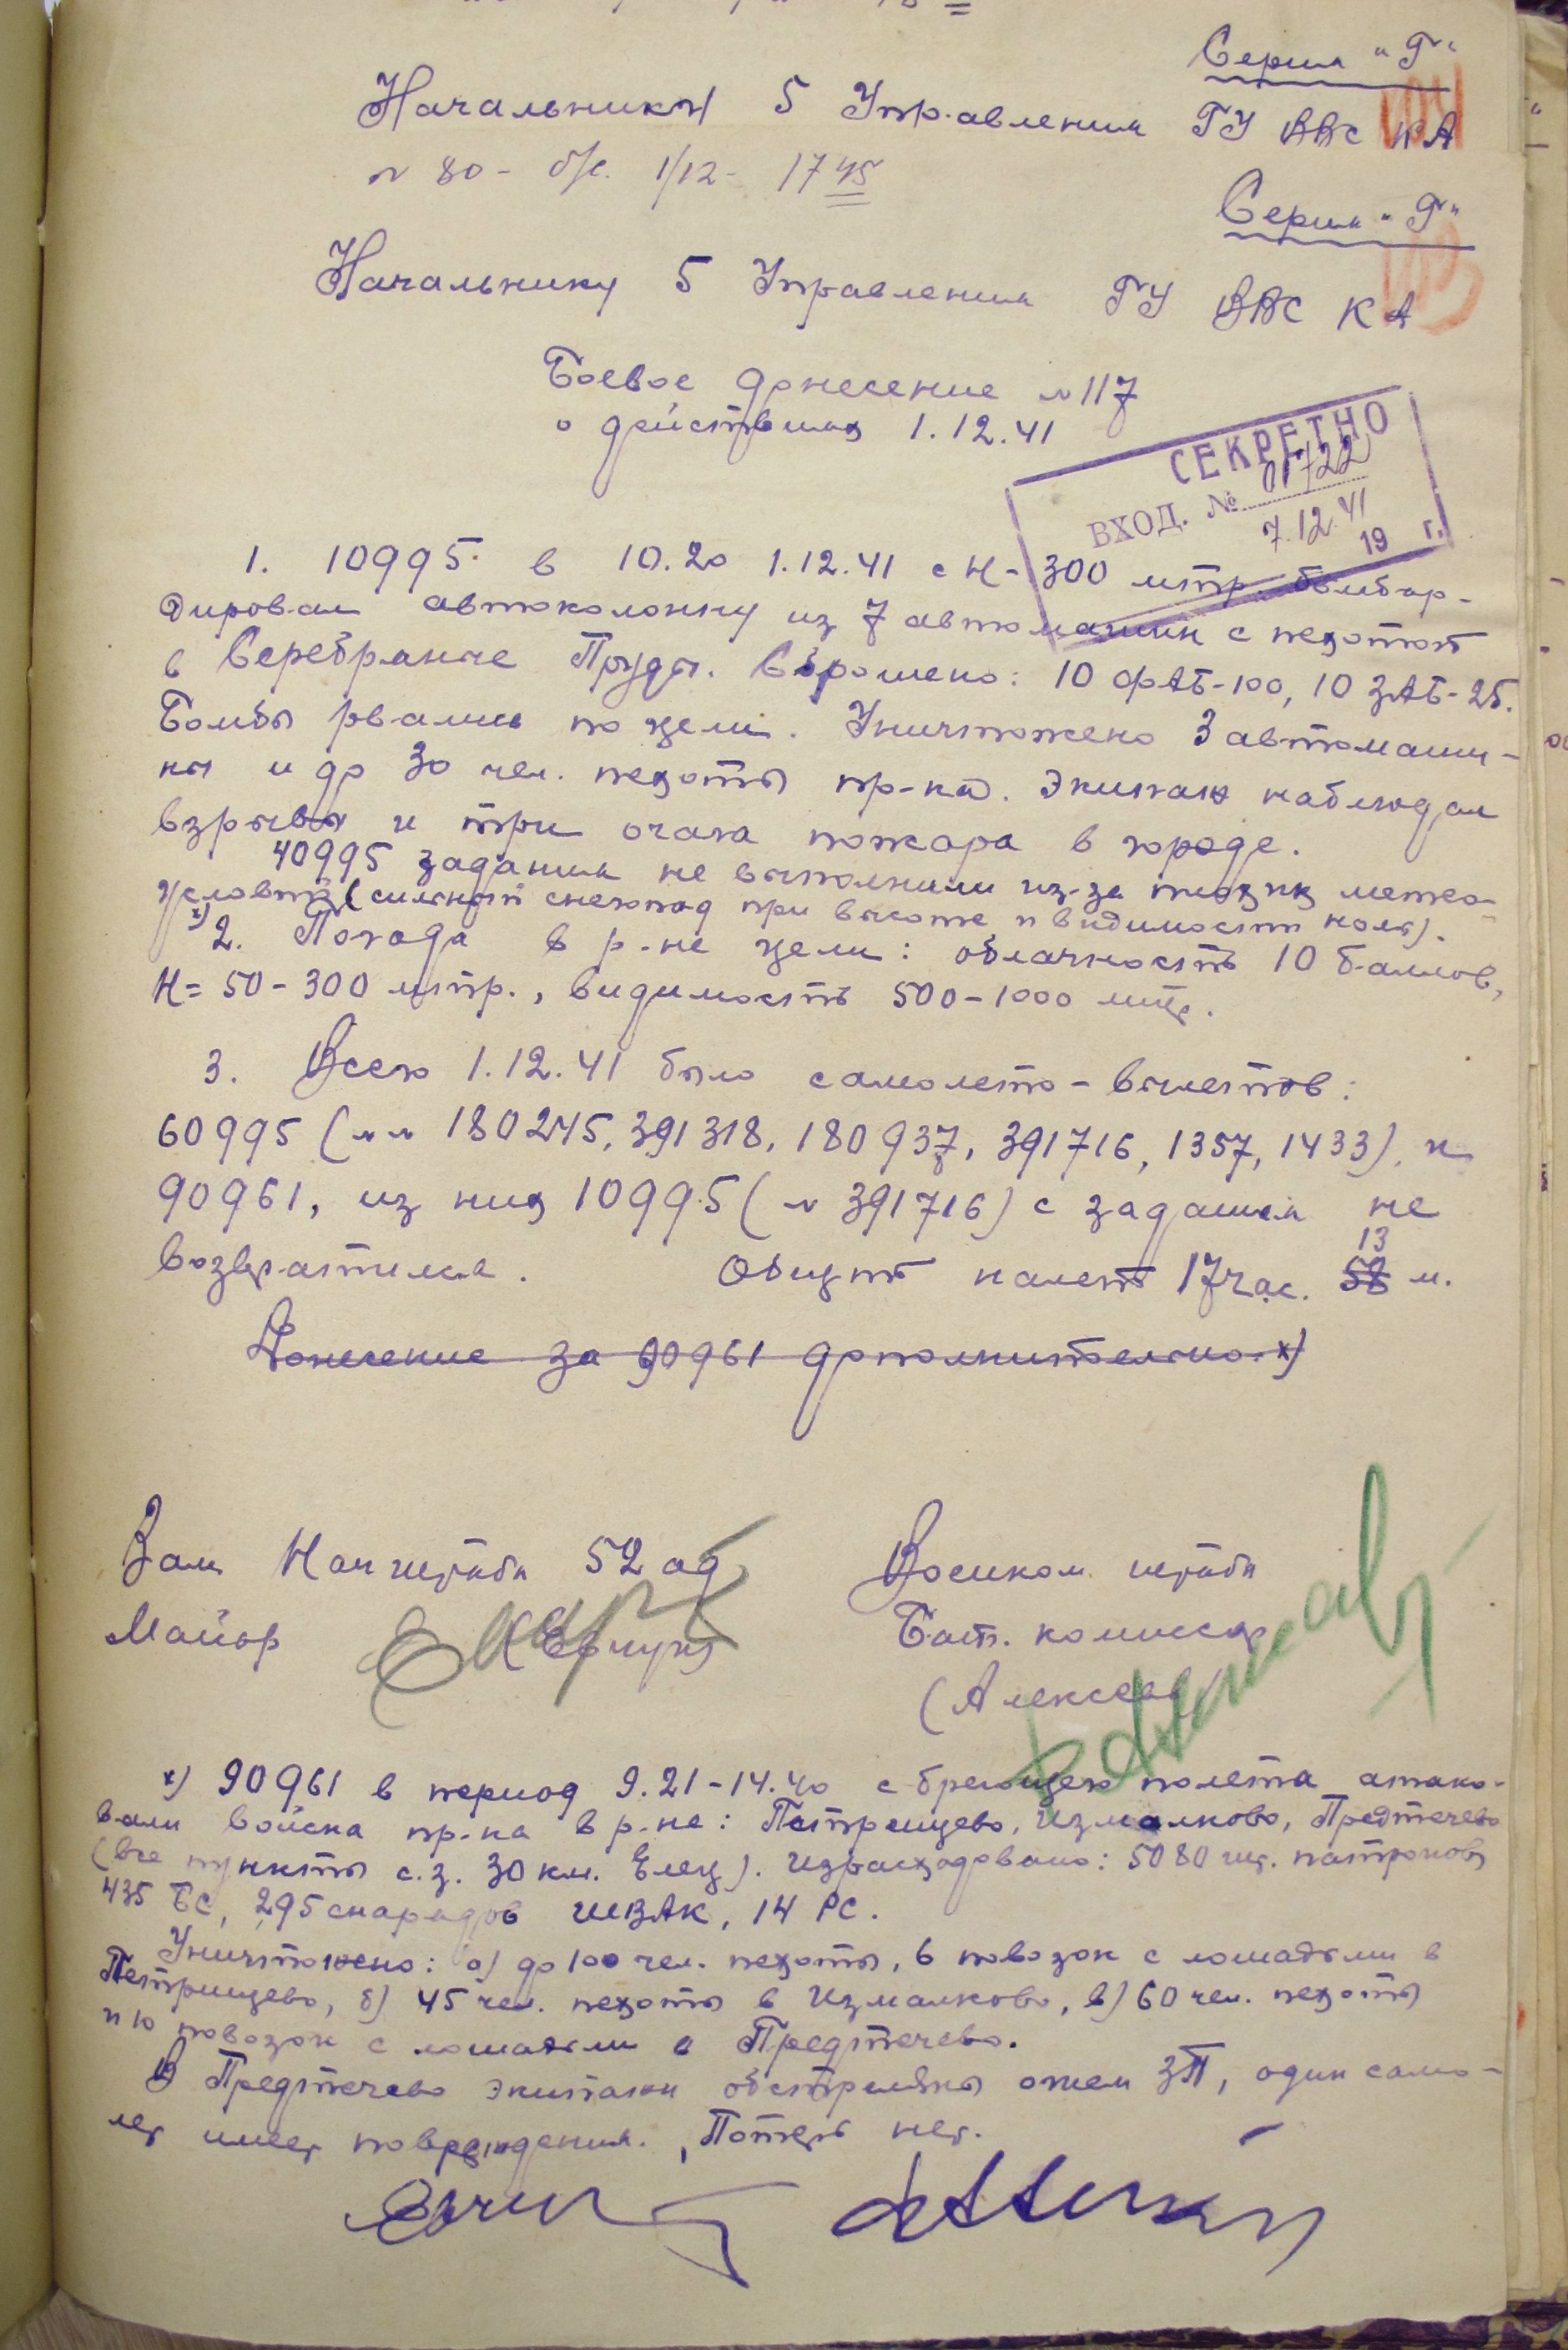 Серия "Г"
Начальнику 5 Управления ГУ ВВС КА
№ 80 - б/с. 1/12 - 17 45
Серия "Г"
Начальнику 5 Управления ГУ ВВС КА
Боевое донесение №117
о действиях 1.12.41
СЕКРЕТНО
ВХОД. № 01722
7.12.41
19 г.
1. 10995 в 10.20 1.12.41 с Н-300 мтр. бомбар-
дировал автоколонну из 7 автомашин с пехотой
в Серебряные Пруды. Сброшено: 10 ФАБ-100, 10 ЗАБ-25.
Бомбы рвались по цели. Уничтожено 3 автомаши-
ны и до 30 чел. пехоты пр-ка. Экипаж наблюдал
взрывы и три очага пожара в городе.
40995 задания не выполнили из-за плохих метео-
условий (сильный снегопад при высоте и видимости ноль).
х) 2. Погода в р-не цели: облачность 10 баллов,
Н=50-300 мтр., видимость 500-1000 мтр.
3. Всего 1.12.41 было самолето-вылетов:
60995 (№№ 180245, 391318, 180937, 391716, 1357, 1433), и
90961, из них 10995 (№ 391716) с задания не
возвратился. Общий налет 17 час. 13 м.
Донесение за 90961 дополнительно. х)
Зам Начштаба 52 ад
Майор
Военком штаба
Бат. комиссар
(Алексеев)
х) 90961 в период 9.21-14.40 с бреющего полета атако-
вали войска пр-ка в р-не: Петрищево, Измалково, Предтечево
(все пункты с.з. 30 км. Елец). Израсходовано: 5080 шт. патронов
435 БС, 295 снарядов ШВАК, 14 РС.
Уничтожено: а) до 100 чел. пехоты, 6 повозок с лошадьми в
Петрищево, б) 45 чел. пехоты в Измалково, в) 60 чел. пехоты
и 10 повозок с лошадьми в Предтечево.
В Предтечево экипажи обстреляны огнем ЗП, один само-
лет имеет повреждения. Потерь нет.